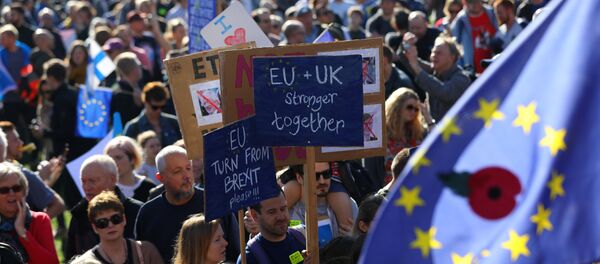 I
EU + UK
stronger
together
EU
TURN FROM
BREXIT
please!!!